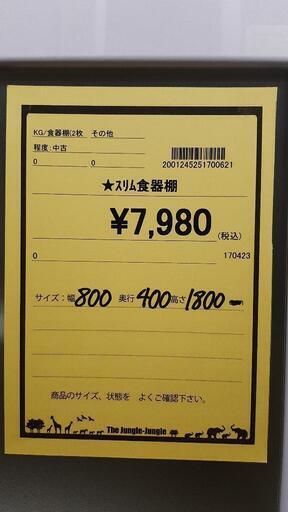 KG/食器棚(2枚 その他
程度:中古
0 0
2001245251700621
★ｽﾘﾑ食器棚
¥7,980(税込)
0 170423
サイズ:幅800 奥行400高さ1800
商品のサイズ、状態を よくご確認下さい。
The Jungle-Jungle